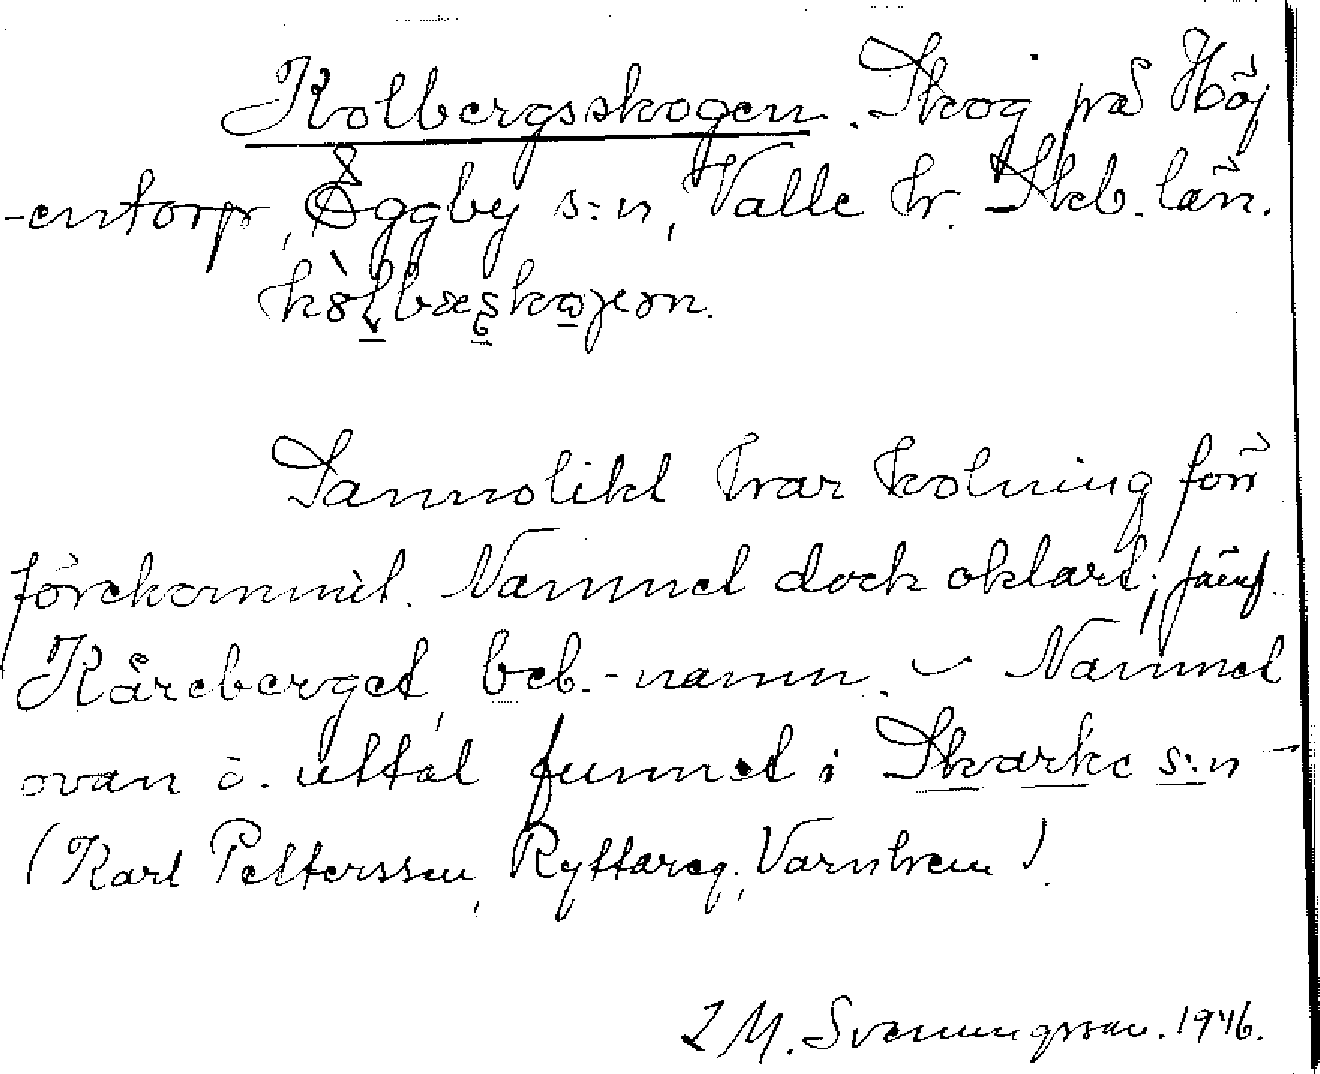 Kolbergsskogen. Skog på Höj
-entorp, Eggby s:n, Valle hr. Skb. län.
Sannolikt har kolning förr
förekommit. Namnet dock oklart; jämf.
Kåreberget, beb.-namn. - Namnet
ovan o. uttal funnet i Skarke s:n
(Karl Pettersson, Ryttareg., Varnhem).
L M. Svenungsson. 1946.